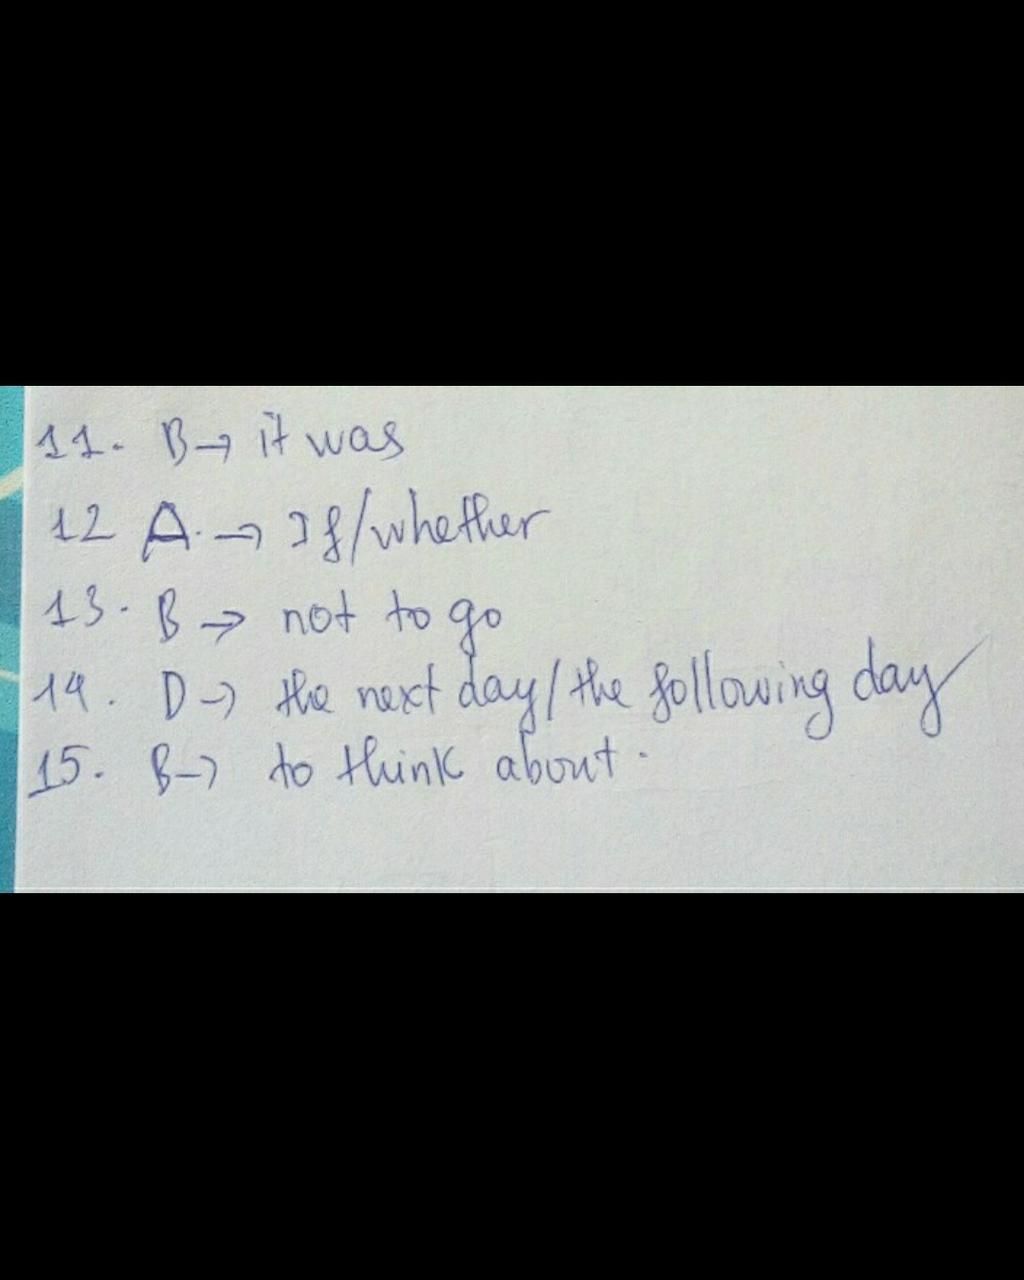 11. B→ it was
12 A. → If/whether
13. B → not to go
14. D→ the next day/the following day
15. B→ to think about.